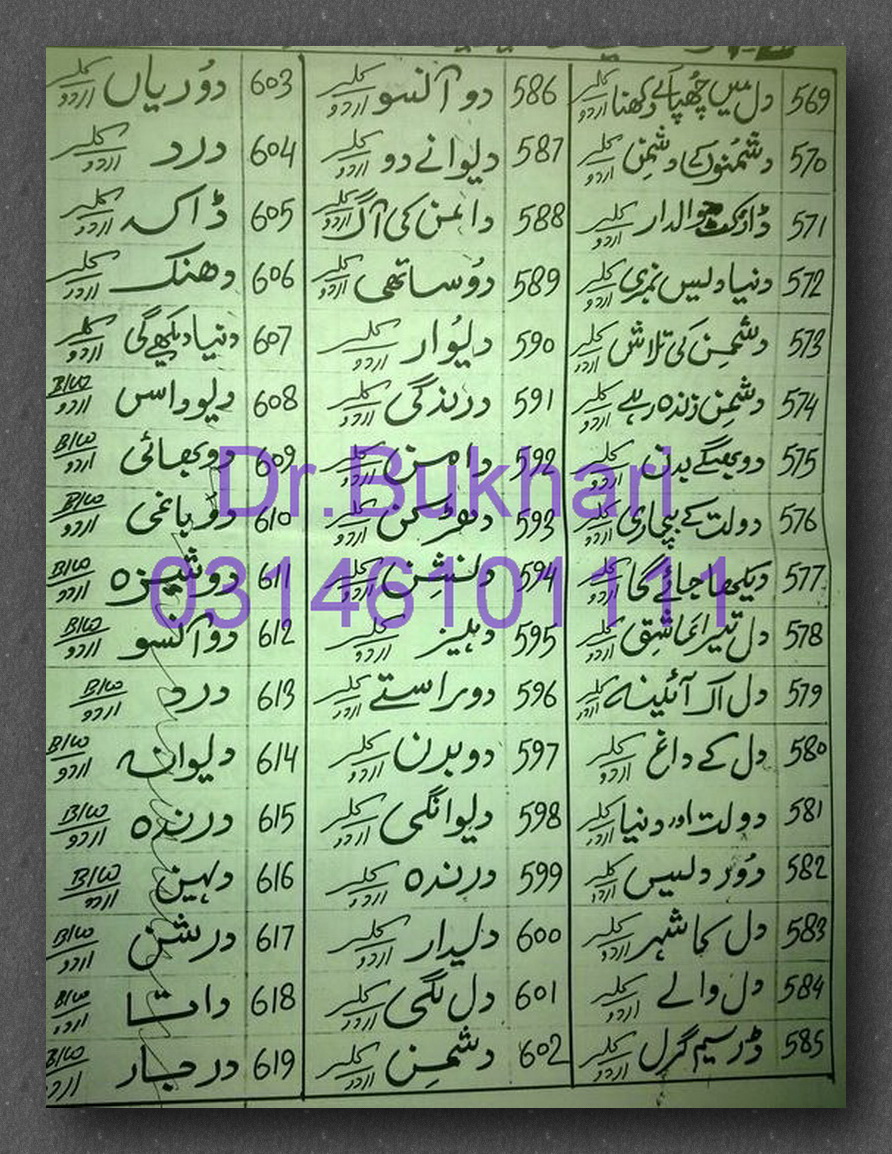 569 دل میں چھپا کے رکھنا کلر اردو
570 دشمنوں کے دشمن کلر اردو
571 ڈائرکٹ حوالدار کلر اردو
572 دنیا دلیس نمبری کلر اردو
573 دشمن کی تلاش کلر اردو
574 دشمن زندہ رہے کلر اردو
575 دو بھیگے بدن کلر اردو
576 دولت کے پجاری کلر اردو
577 دیکھا جائے گا کلر اردو
578 دل تیرا عاشق کلر اردو
579 دل اک آئینہ کلر اردو
580 دل کے داغ کلر اردو
581 دولت اور دنیا کلر اردو
582 دور دلیس کلر اردو
583 دل کا شہر کلر اردو
584 دل والے کلر اردو
585 ڈریم گرل کلر اردو
586 دو آنسو کلر اردو
587 دیوانے دو کلر اردو
588 دامن کی آگ کلر اردو
589 دو ساتھی کلر اردو
590 دیوار کلر اردو
591 درندگی کلر اردو
592 دامن کلر اردو
593 دھڑکن کلر اردو
594 دلنشن کلر اردو
595 دہلیز کلر اردو
596 دوراستے کلر اردو
597 دو بدن کلر اردو
598 دیوانگی کلر اردو
599 درندہ کلر اردو
600 دلیدار کلر اردو
601 دل لگی کلر اردو
602 دشمن کلر اردو
603 دوُریاں کلر اردو
604 درد کلر اردو
605 ڈاکہ کلر اردو
606 دھنک کلر اردو
607 دنیا دیکھے گی کلر اردو
608 دیوداس B/W اردو
609 دو بھائی B/W اردو
610 دو باغی B/W اردو
611 دوشیزہ B/W اردو
612 دو آنسو B/W اردو
613 درد B/W اردو
614 دیوانہ B/W اردو
615 درندہ B/W اردو
616 دلہن B/W اردو
617 درشن B/W اردو
618 داتا B/W اردو
619 دربار B/W اردو
Dr.Bukhari
03146101111